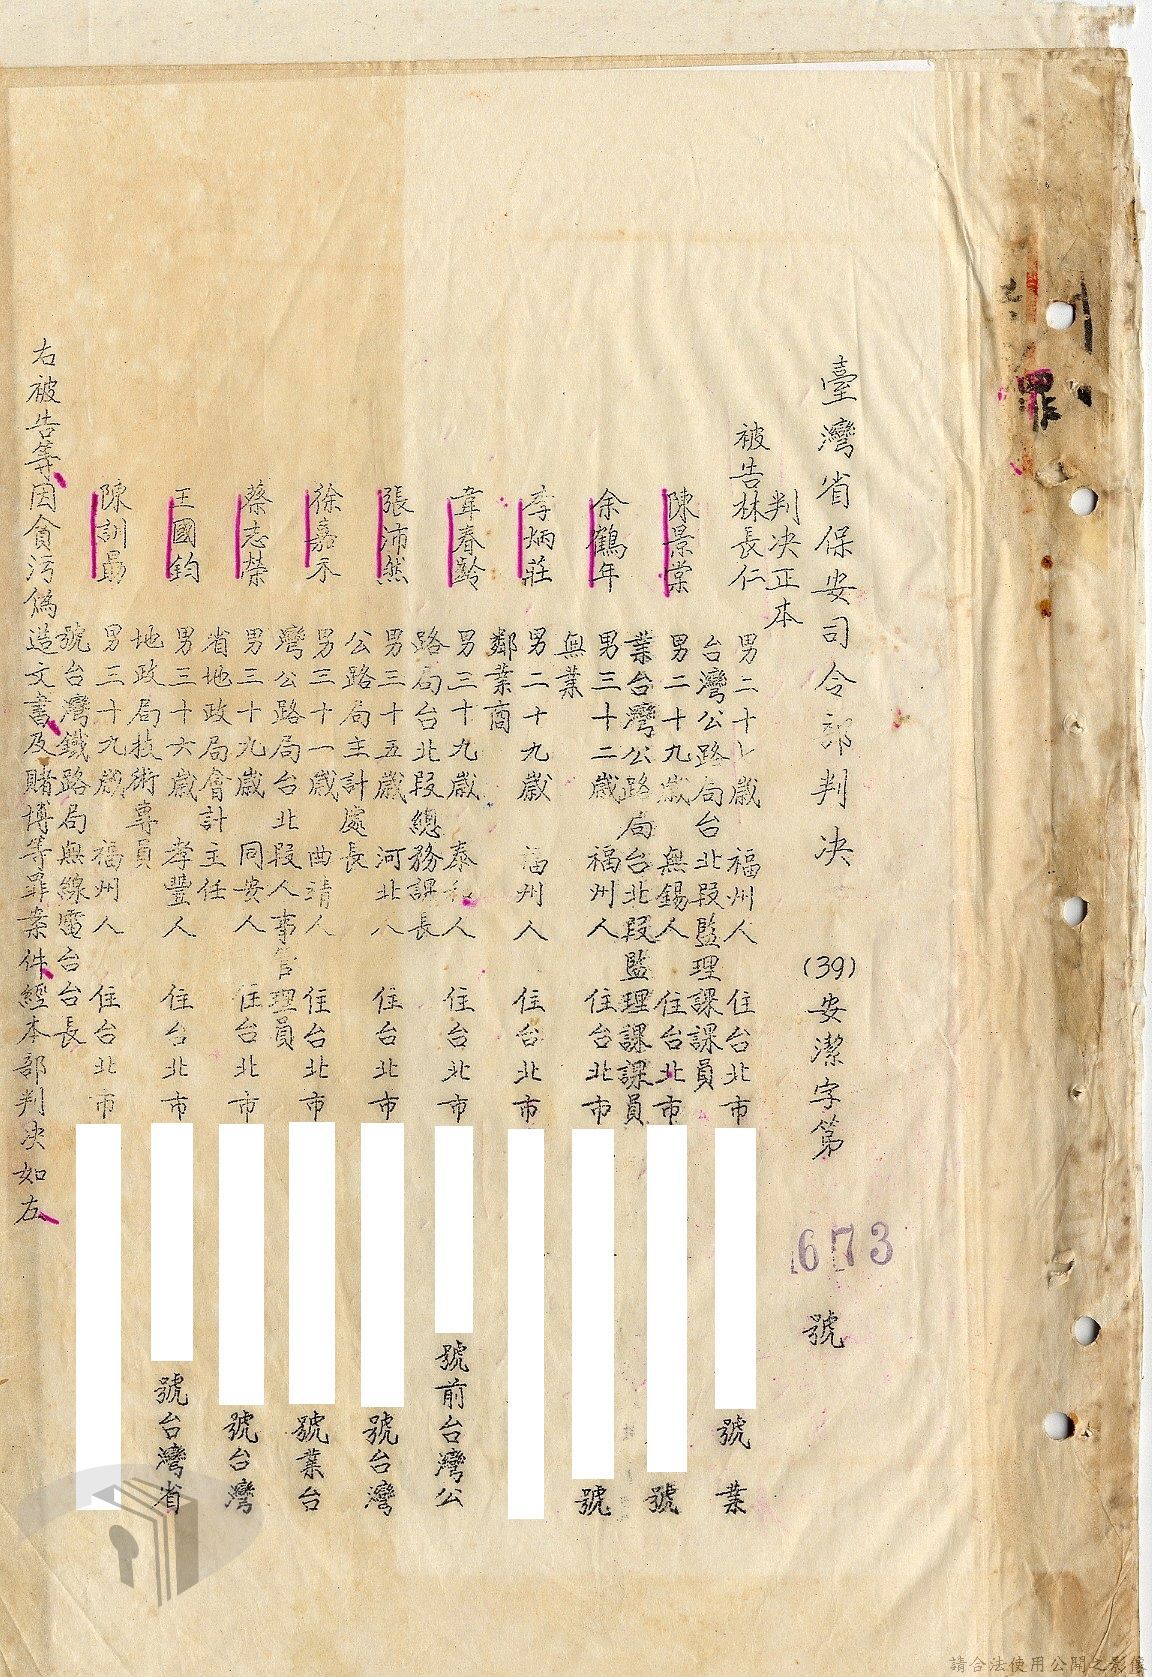 罪
臺灣省保安司令部判決 (39)安潔字第 1673 號
判決正本
被告林長仁 男二十七歲 福州人 住台北市 號 業
台灣公路局台北段監理課課員
陳景棠 男二十九歲 無錫人 住台北市 號
業台灣公路局台北段監理課課員
余鶴年 男三十二歲 福州人 住台北市 號
無業
李炳莊 男二十九歲 福州人 住台北市
鄰業商
韋春齡 男三十九歲 泰和人 住台北市 號前台灣公
路局台北段總務課長
張沛然 男三十五歲 河北人 住台北市 號台灣
公路局主計處長
徐嘉禾 男三十一歲 曲靖人 住台北市 號業台
灣公路局台北段人事管理員
蔡志榮 男三十九歲 同安人 住台北市 號台灣
省地政局會計主任
王國鈞 男三十六歲 孝豐人 住台北市 號台灣省
地政局技術專員
陳訓勗 男三十九歲 福州人 住台北市
號台灣鐵路局無線電台台長
右被告等因貪污偽造文書及賭博等罪案件經本部判決如左
請合法使用公開之影像